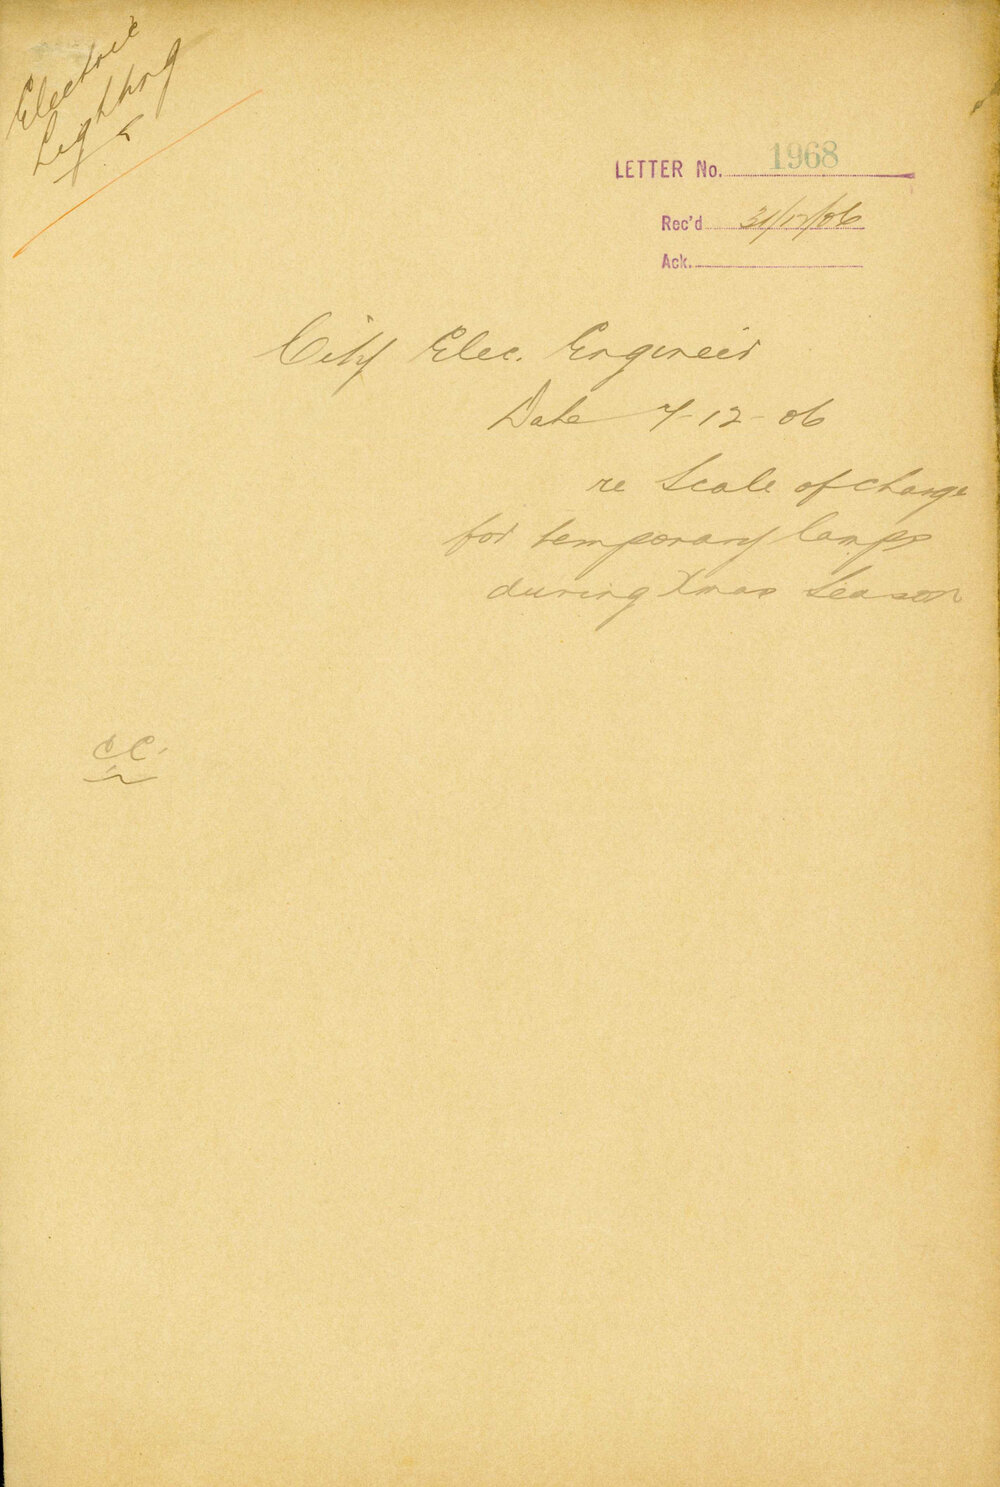 Electric
Lighting
LETTER No. 1968
Rec'd 31/12/06
Ack.
City Elec. Engineer
Date 7-12-06
re Scale of charge
for temporary lamps
during Xmas Season
CC.